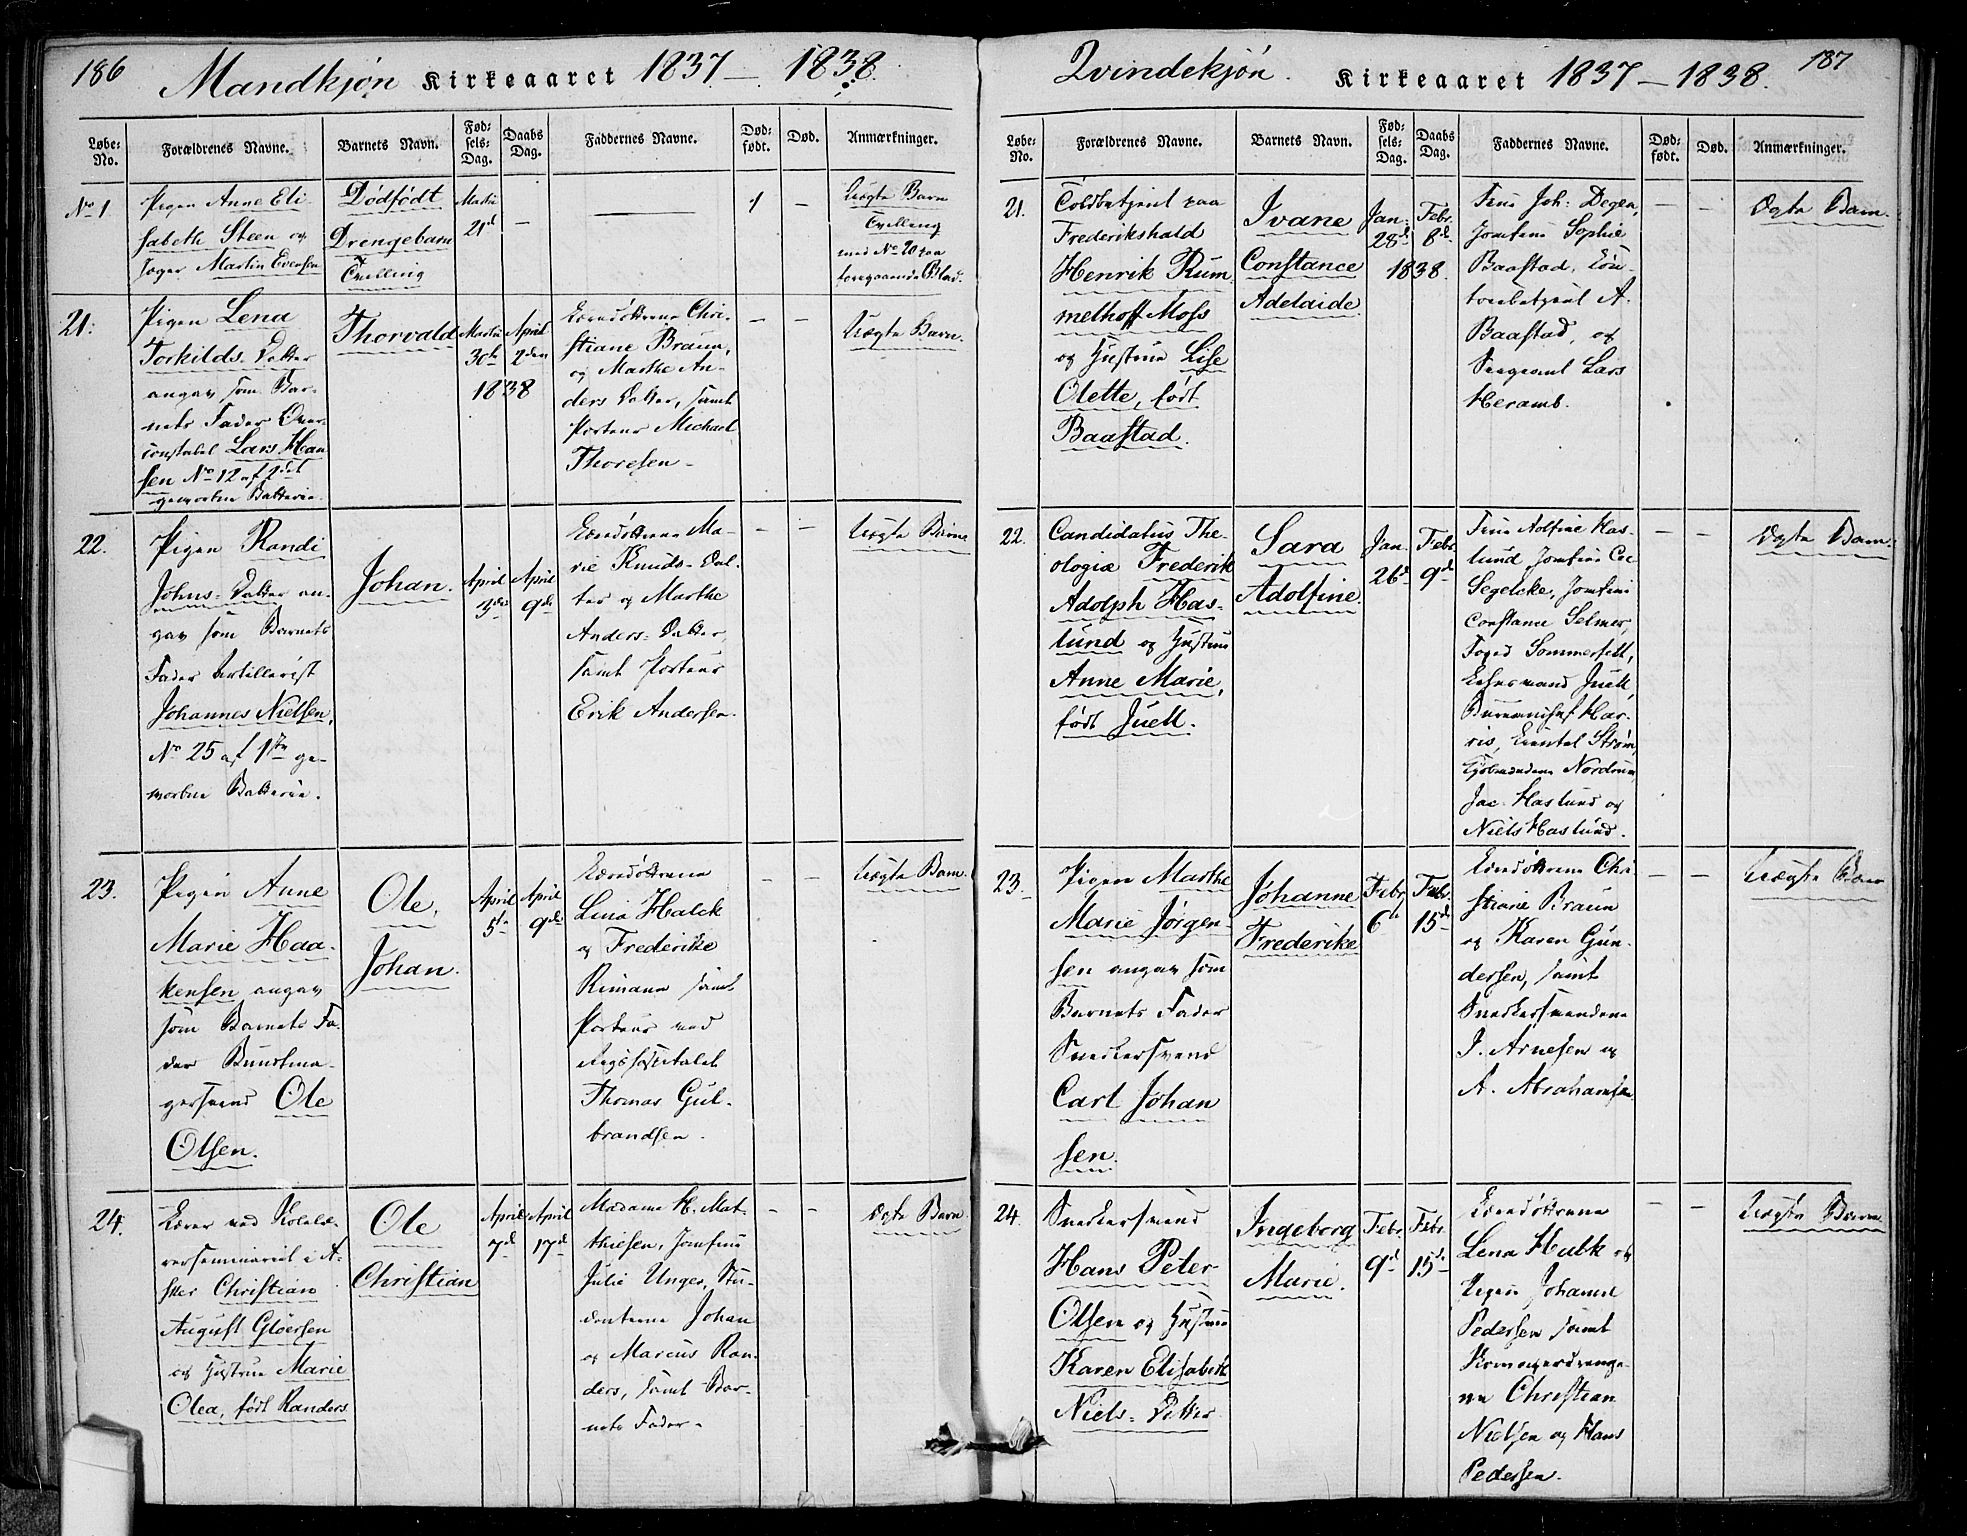 186
Mandkjøn Kirkeaaret 1837 — 1838.
Løbe-No.
Forældrenes Navne.
Barnets Navn.
Fødsels-Dag.
Daabs Dag.
Faddernes Navne.
Død-født.
Død.
Anmærkninger.
No 1.
Pigen Anne Eli-
sabeth Steen og
Jæger Martin Evensen
Dødfødt
Drengebarn
Tvilling
Martii
21d
—
—
1
—
Uægte Barn
Tvilling
med No 20 paa
foregaaende Blad.
21.
Pigen Lena
Torkilds Datter
angav som Bar-
nets Fader Over-
constabel Lars Han
sen No 12 af 2det
gevorbne Batterie
Thorvald
Martii
30te
April
2den
1838
Chri-
stiane Braun,
og Marthe An-
ders Datter, samt
Porteur Michael
Thoresen
—
—
Uægte Barn.
22.
Pigen Randi
Johns-Datter an-
gav som Barnets
Fader Artillerist
Johannes Nielsen,
No 25 af 1ste ge-
vorbne Batterie.
Johan.
April
3die
April
9de
Ma-
rie Knuds-Dat-
ter og Marthe
Anders-Datter,
samt Porteur
Erik Andersen.
—
—
Uægte Barn
23.
Pigen Anne
Marie Haa-
kensen angav
som Barnets Fa-
der Buntma-
gersvend Ole
Olsen.
Ole,
Johan.
April
5te
April
9de
Lena Halck
og Frederikke
Rimann samt
Porteur ved
Rigshospitalet
Thomas Gul-
brandsen.
—
—
Uægte Barn.
24.
Lærer ved Skolelæ-
rerseminariet i A-
sker Christian
August Gløersen
og Hustrue Marie
Olea, født Randers
Ole
Christian
April
7d
April
17d
Madame H. Mat-
thiesen, Jomfrue
Julie Unger, Stu-
denterne Johan
og Marcus Ran-
ders, samt Bar-
nets Fader.
—
—
Ægte Barn.
187
Qvindekjøn. Kirkeaaret 1837 — 1838.
Løbe-No.
Forældrenes Navne.
Barnets Navn.
Fødsels-Dag.
Daabs Dag.
Faddernes Navne.
Død-født.
Død.
Anmærkninger.
21.
Toldbetjent paa
Frederikshald
Henrik Rum
melhoff Moss
og Hustrue Lise
Olette, født
Baastad.
Ivane
Constance
Adelaide.
Jan.
28d
Febr.
8d
1838.
Frue Joh: Degen,
Jomfrue Sophie
Baastad, Con-
toirbetjent A.
Baastad, og
Sergeant Lars
Heramb.
—
—
Ægte Barn.
22.
Candidatus The-
ologiæ Frederik
Adolph Has-
lund og Hustrue
Anne Marie,
født Juell.
Sara
Adolfine.
Jan.
26d
Febr.
9d
Frue Adolfine Has-
lund, Jomfrue
Segelcke, Jomfrue
Constance Selmer,
Foged Sommerfelt,
Juell,
Bureauchef Har-
ris, Strøm,
Kjøbmændene Nordrum
Jac. Haslund og
Niels Haslund.
—
—
Ægte Barn.
23.
Pigen Marthe
Marie Jørgen-
sen angav som
Barnets Fader
Snedkersvend
Carl Johan
sen.
Johanne
Frederike
Febr.
6te
Febr.
15d
Chri
stiane Braun
og Karen Gun-
dersen, samt
Snedkersvendene
J. Arnesen og
A. Abrahamsen.
—
—
Uægte Barn
24.
Snedkersvend
Hans Peter
Olsen og Hustrue
Karen Elisabeth
Niels-Datter
Ingeborg
Marie.
Febr.
9d
Febr.
15d
Lena Halck og
Pigen Johanne
Pedersen samt
Skomagerdrenge-
ne Christian
Nielsen og Hans
Pedersen.
—
—
Uægte Barn